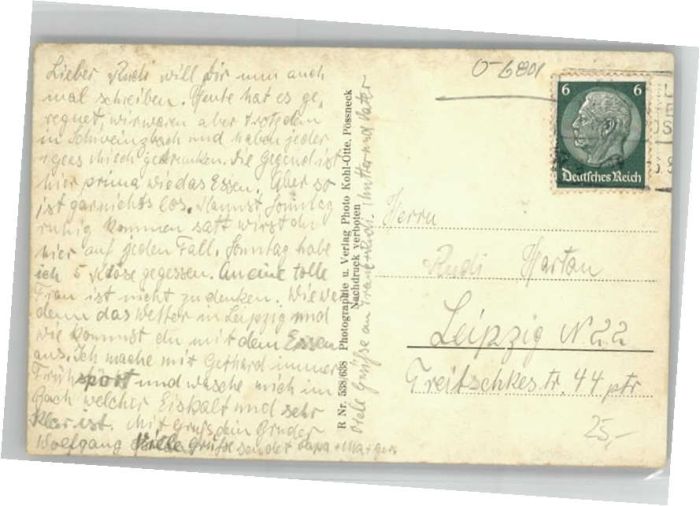 Lieber Rudi will dir nun auch
mal schreiben. Heute hat es ge,
regnet wir waren aber trotzdem
in Schweinzbach und haben jeder
Milch getrunken. Die Gegend ist
hier prima wie das Essen. Aber so
ist garnichts los. Kannst Sonntag
ruhig kommen satt wirst du
hier auf jeden Fall. Sonntag habe
ich 5 Klöse gegessen. An eine tolle
Frau ist nicht zu denken. Wie
denn das Wetter in Leipzig und
wie kommst du mit dem Essen
aus. Ich mache mit Gerhard immer
Frühsport und wasche mich im
Bach welcher Eiskalt und sehr
klar ist. Mit Gruß dein Bruder
Wolfgang Viele Grüße sendet Papa
Viele Grüße an Mutter und Vater
R Nr. 558/638 Photographie u. Verlag Photo Kohl-Otte, Pössneck
Nachdruck verboten
O-6801
6 6
Deutsches Reich
Herrn
Rudi Hartan
Leipzig N 22
Treitschkestr. 44 ptr
25,-